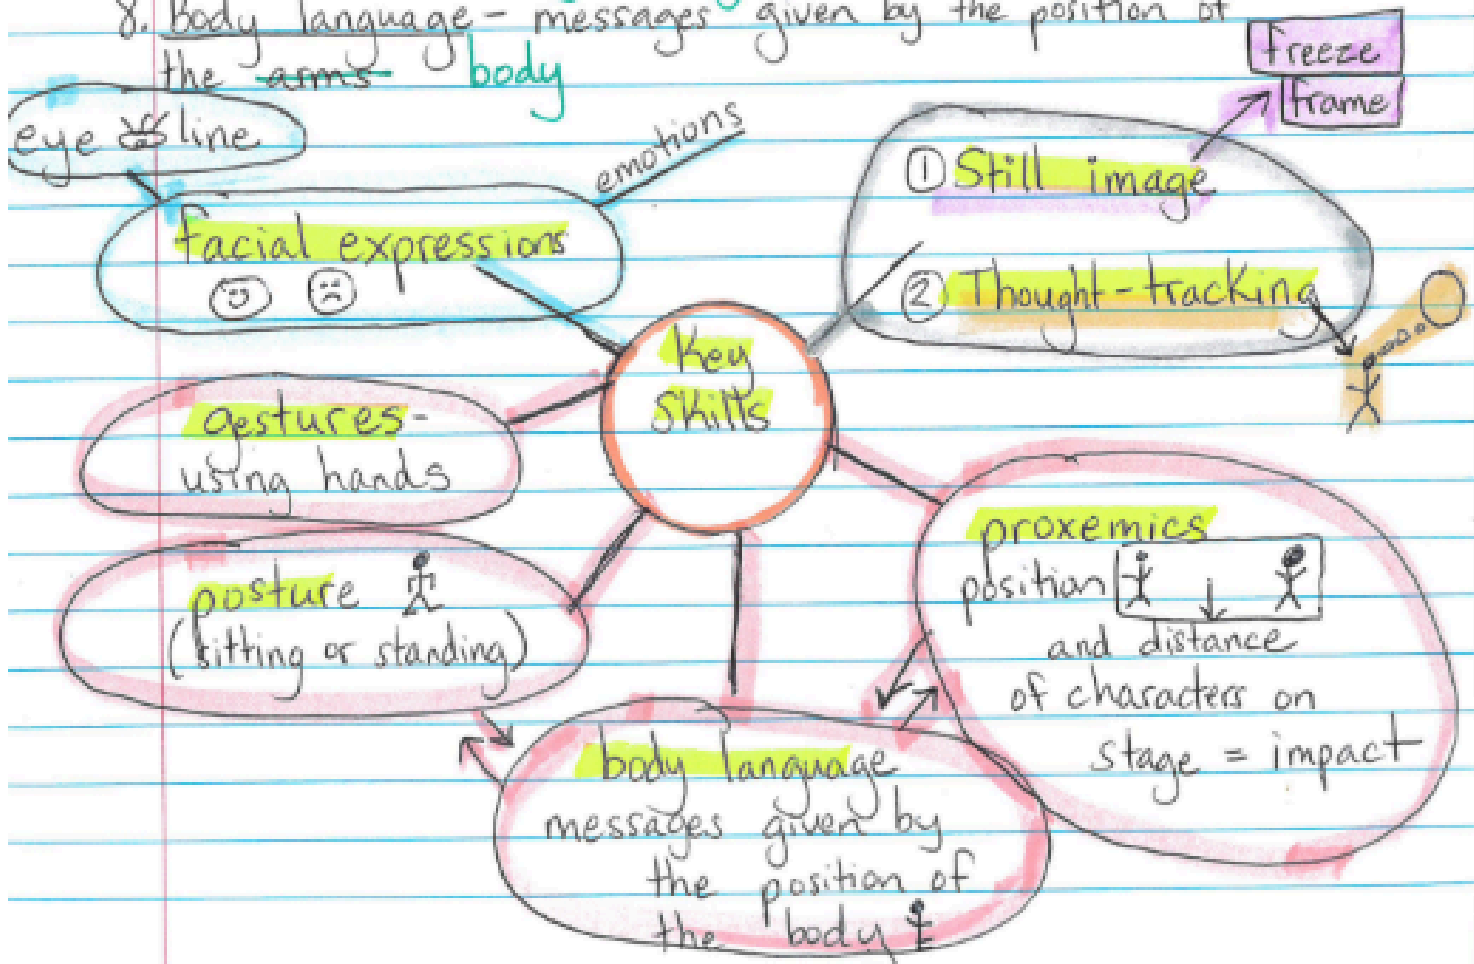 8. Body language - messages given by the position of
the arms body
freeze
frame
eye line
emotions
facial expressions
① Still image
② Thought-tracking
Key
Skills
gestures -
using hands
posture
(sitting or standing)
proxemics
position
and distance
of characters on
stage = impact
body language
messages given by
the position of
the body